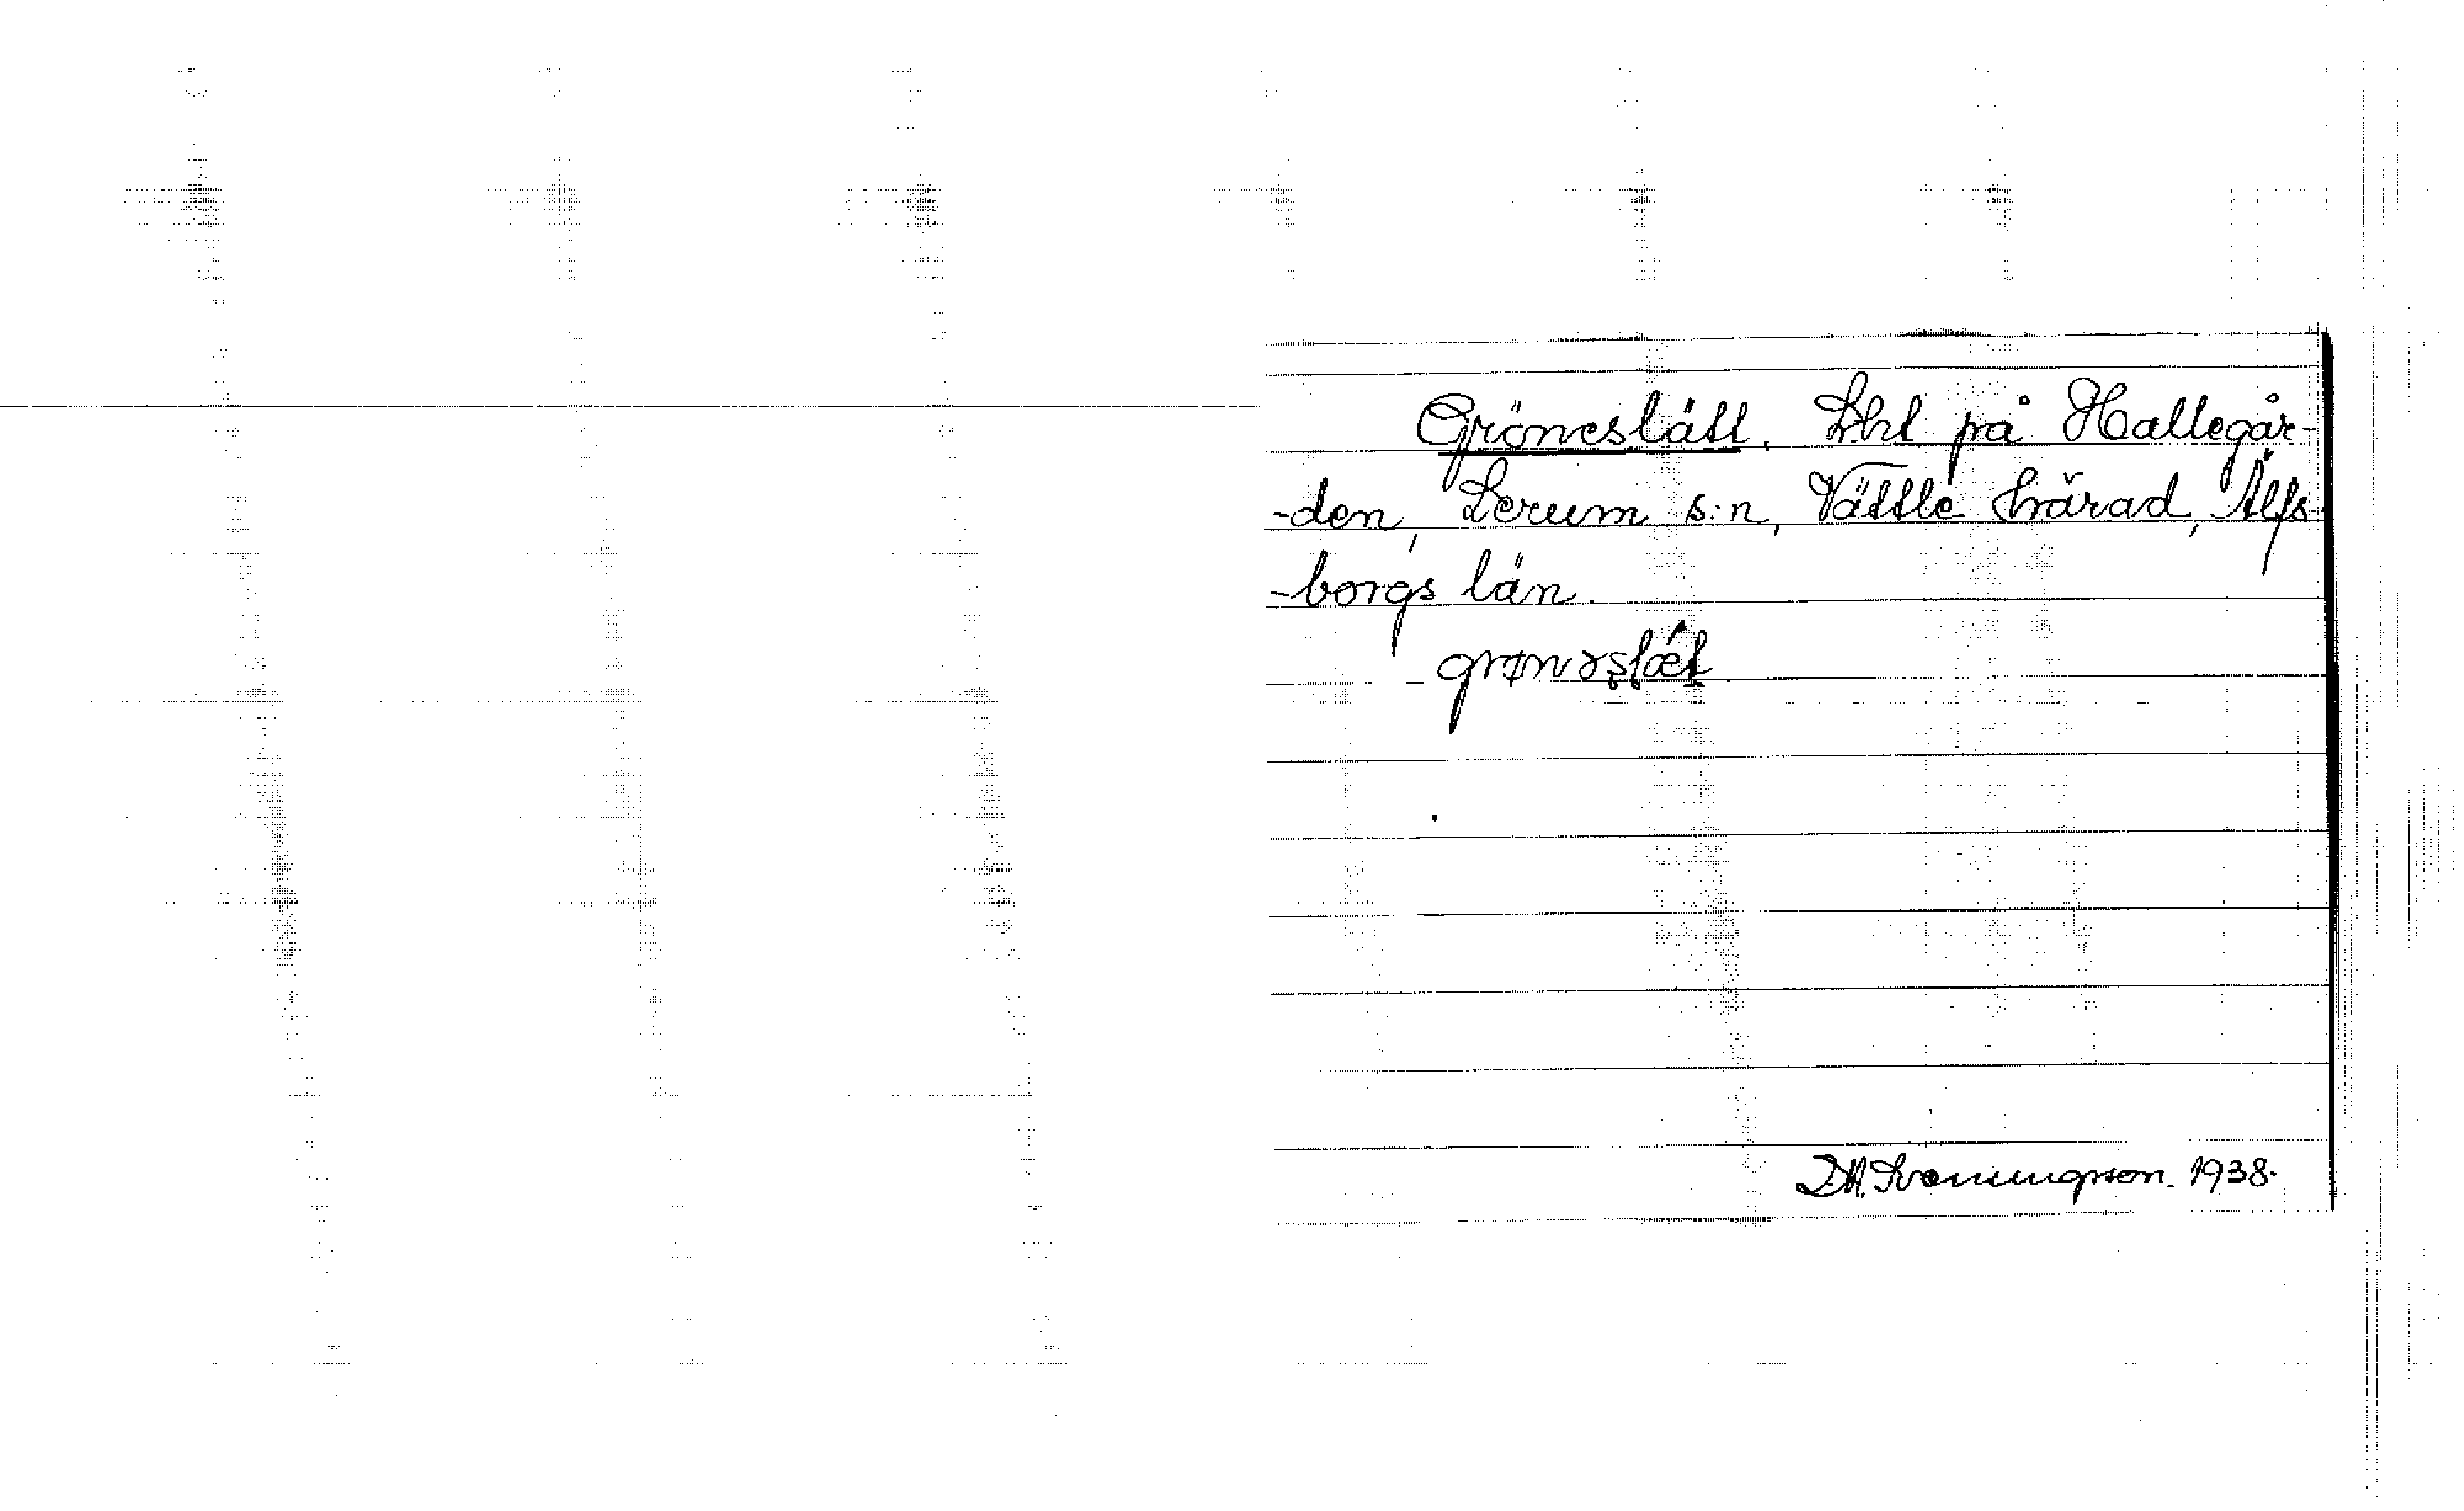 Gröneslätt. Lht på Hallegår-
-den, Lerum s:n, Vättle härad, Älfs-
-borgs län.
grønəslǽt
D.A. Svenningson. 1938.